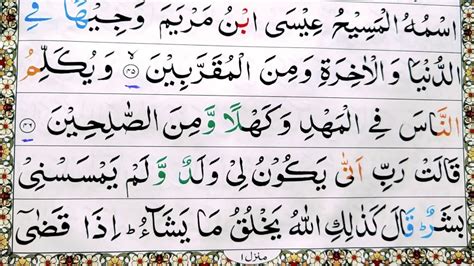 اسْمُهُ الْمَسِيْحُ عِيْسَى ابْنُ مَرْيَمَ وَجِيْهًا فِي
الدُّنْيَا وَالْاٰخِرَةِ وَمِنَ الْمُقَرَّبِيْنَ ۙ۴۵ وَيُكَلِّمُ
النَّاسَ فِي الْمَهْدِ وَكَهْلًا وَّ مِنَ الصّٰلِحِيْنَ ۴۶
قَالَتْ رَبِّ اَنّٰى يَكُوْنُ لِيْ وَلَدٌ وَّ لَمْ يَمْسَسْنِيْ
بَشَرٌ ؕ قَالَ كَذٰلِكِ اللّٰهُ يَخْلُقُ مَا يَشَآءُ ؕ اِذَا قَضٰۤى
منزل ۱